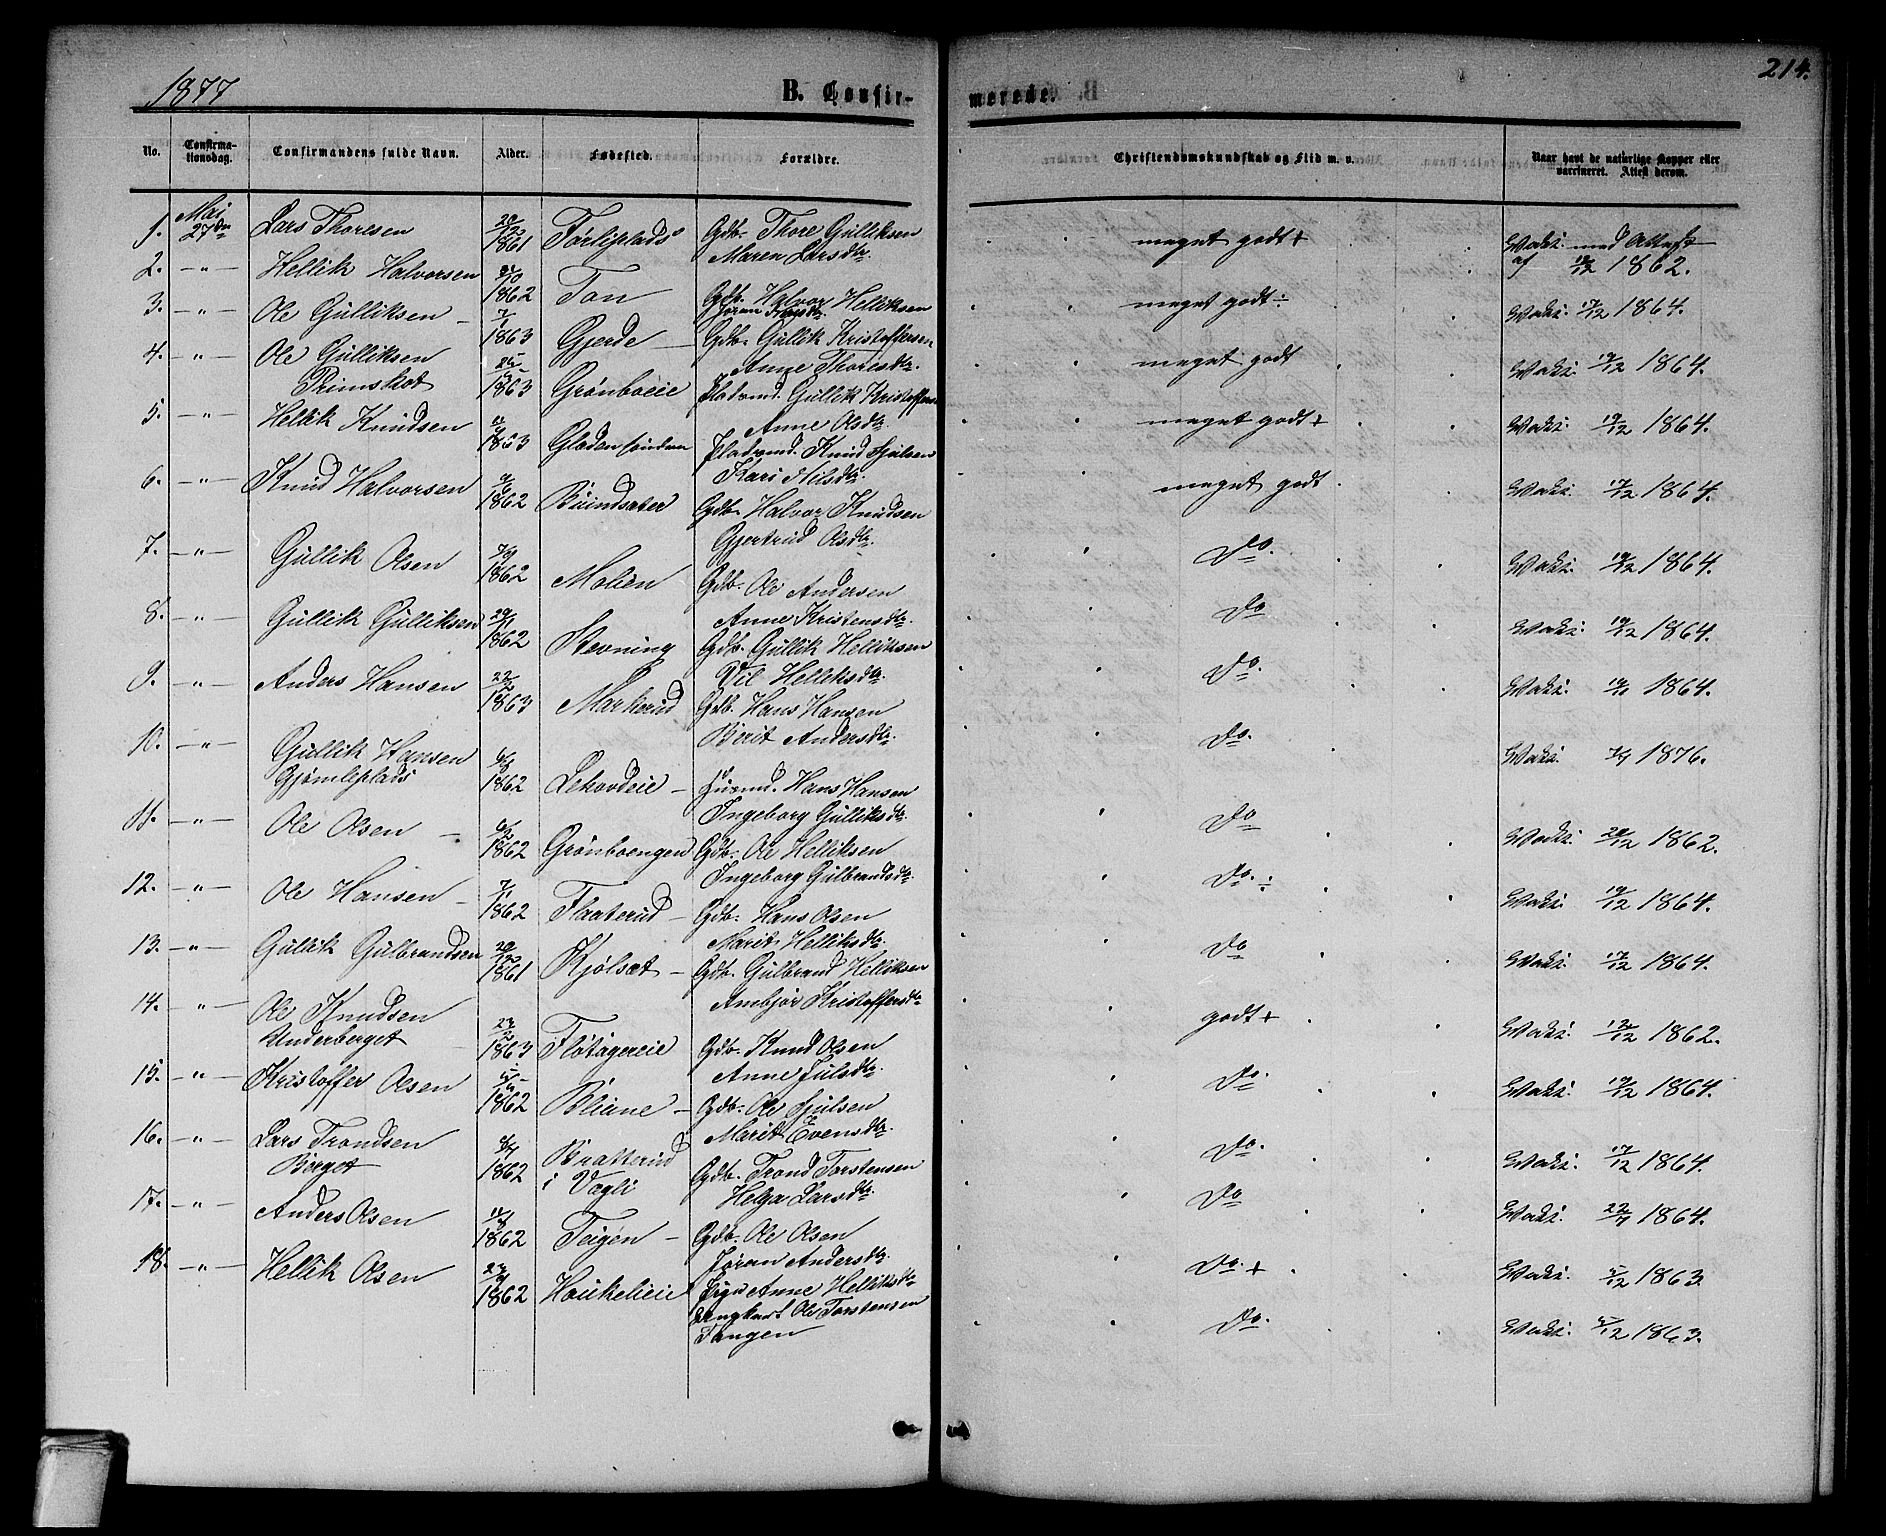 1877
B. Confir-
merede.
214.
No.
Confirma-
tionsdag.
Confirmandens fulde Navn.
Alder.
Fødested.
Forældre.
Christendomskundskab og Flid m. v.
Naar havt de naturlige Kopper eller
vaccineret. Attest derom.
1. Mai 27de Lars Thoresen 20/12 1861 Førliplads Gdb. Thore Gulliksen
Maren Larsdtr. meget godt + Vaks: med Attest
af 19/12 1862.
2. -"- Hellik Halvorsen 1862 Ton Gdb. Halvor Helliksen
meget godt ÷ Vaks: 17/12 1864.
3. -"- Ole Gulliksen 1863 Gjerde Gdb. Gullik Kristoffersen
Anne Thoresdtr. meget godt Vaks: 19/12 1864.
4. -"- Ole Gulliksen
Rimskot 1863 Grønboeie Pladsmd. Gullik Kristoffers.
Anne Olsdtr. meget godt + Vaks: 19/12 1864.
5. -"- Hellik Knudsen 1863 Gladen søndre Pladsmd. Knud Sjulsen
Kari Nilsdtr. meget godt. Vaks: 17/12 1864.
6. -"- Knud Halvorsen 1862 Buindsater Gdb. Halvor Knudsen
Gjertrud Olsdtr. Do. Vaks: 19/12 1864.
7. -"- Gullik Olsen 1862 Molien Gdb. Ole Andersen
Anne Kristensdtr. Do Vaks: 19/12 1864.
8. -"- Gullik Gulliksen 29/11 1862 Stevning Gdb. Gullik Helliksen
Vil Helliksdtr. Do. Vaks: 1864.
9. -"- Anders Hansen 22/2 1863 Markerud Gdb. Hans Hansen
Berit Andersdtr. Do. Vaks: 1876.
10. -"- Gullik Hansen
Gjømleplads 1862 Lekovdeie Husmd. Hans Hansen
Ingeborg Gulliksdtr. Do Vaks: 20/12 1862.
11. -"- Ole Olsen 1862 Grønboengen Gdb. Ole Helliksen
Ingeborg Gulbrandsdtr. Do. ÷ Vaks: 19/12 1864.
12. -"- Ole Hansen 7/11 1862 Flaaterud Gdb. Hans Olsen
Marit Helliksdtr. Do Vaks: 17/12 1864.
13. -"- Gullik Gulbrandsen 20/12 1861 Kjølsæt Gdb. Gulbrand Helliksen
Ambjør Kristoffersdtr. godt + Vaks: 1862.
14. -"- Ole Knudsen
Underberget 23/2 1863 Fløtagereie Gdb. Knud Olsen
Anne Julsdtr. Do. Vaks: 19/12 1864.
15. -"- Kristoffer Olsen 1862 Bliane Gdb. Ole Sjulsen
Marit Evensdtr. Do. Vaks: 17/12 1864.
16. -"- Lars Trondsen
Berget 1862 Bratterud
i Vægli Gdb. Trond Torstensen
Helga Larsdtr. Do Vaks: 1864.
17. -"- Anders Olsen 1862 Teigen Gdb. Ole Olsen
Jøran Andersdtr. Do. + Vaks: 1863
18. -"- Hellik Olsen 1862 Houkelieie Pige Anne Helliksdtr.
Ungkarl Ole Torstensen
Tangen Do. Vaks: 1863.